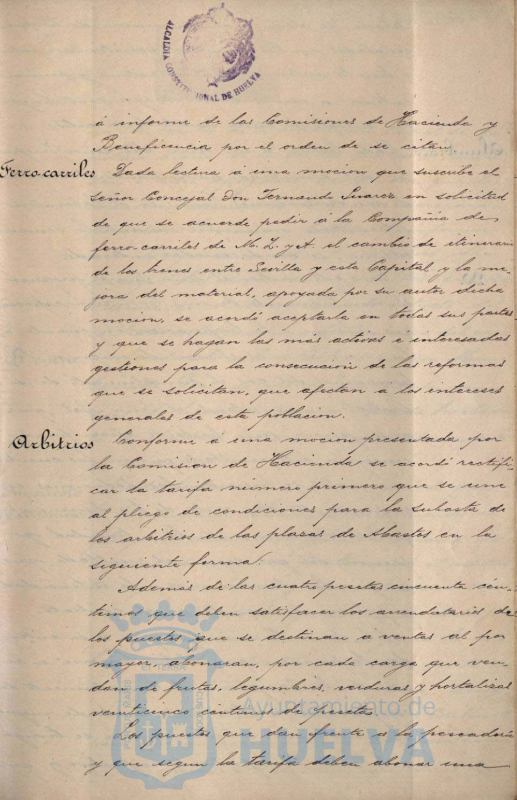 ALCALDIA CONSTITUCIONAL DE HUELVA
á informe de las Comisiones de Hacienda y
Beneficencia por el orden de se citan.
Ferro-carriles Dada lectura á una mocion que suscribe el
señor Concejal Don Fernando Suarez en solicitud
de que se acuerde pedir á la Compañia de
ferro-carriles de M. Z. y A. el cambio de itinerario
de los trenes entre Sevilla y esta Capital y la me-
jora del material, apoyada por su autor dicha
mocion, se acordó aceptarla en todas sus partes
y que se hagan las más activas é interesadas
gestiones para la consecucion de las reformas
que se solicitan, que afectan á los intereses
generales de esta poblacion.
Arbitrios Conforme á una mocion presentada por
la Comision de Hacienda se acordó rectifi-
car la tarifa número primero que se une
al pliego de condiciones para la subasta de
los arbitrios de las plazas de Abastos en la
siguiente forma:
Además de las cuatro pesetas cincuenta cén-
timos que deben satisfacer los arrendatarios de
los puestos que se destinan á ventas al por
mayor, abonaran, por cada carga que ven-
dan, de frutas, legumbres, verduras y hortalizas
veinticinco céntimos de peseta.
Los puestos que dan frente á la pescadería
y que segun la tarifa deben abonar una
Ayuntamiento de
HUELVA